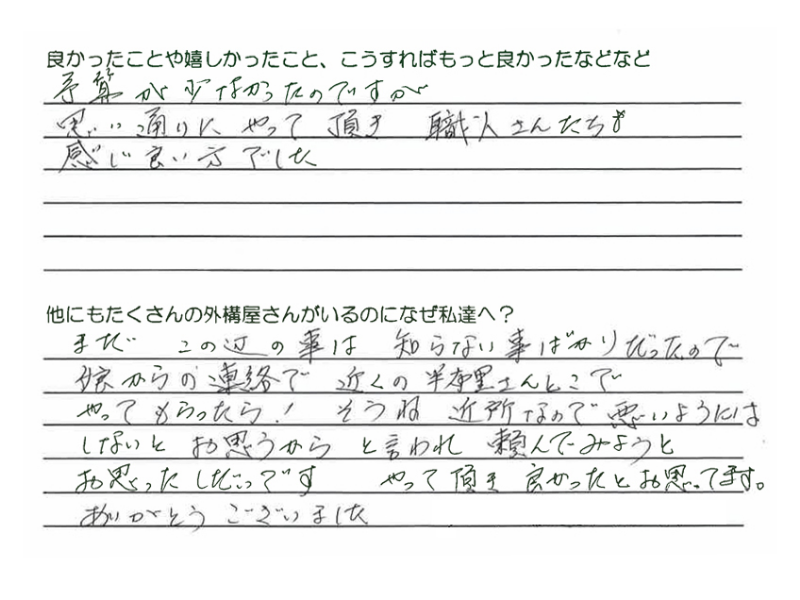 良かったことや嬉しかったこと、こうすればもっと良かったなどなど
予算が少なかったのですが
思い通りに やって 頂き 職人さんたちも
感じ良い方でした
他にもたくさんの外構屋さんがいるのになぜ私達へ?
まだ この辺の事は 知らない事ばかりだったので
からの連絡で 近くの さんとこで
やってもらったら! そうね 近所なので悪いようには
しないとお思うから と言われ 頼んでみようと
お思ったしだいです やって頂き良かったとお思ってます。
ありがとうございました